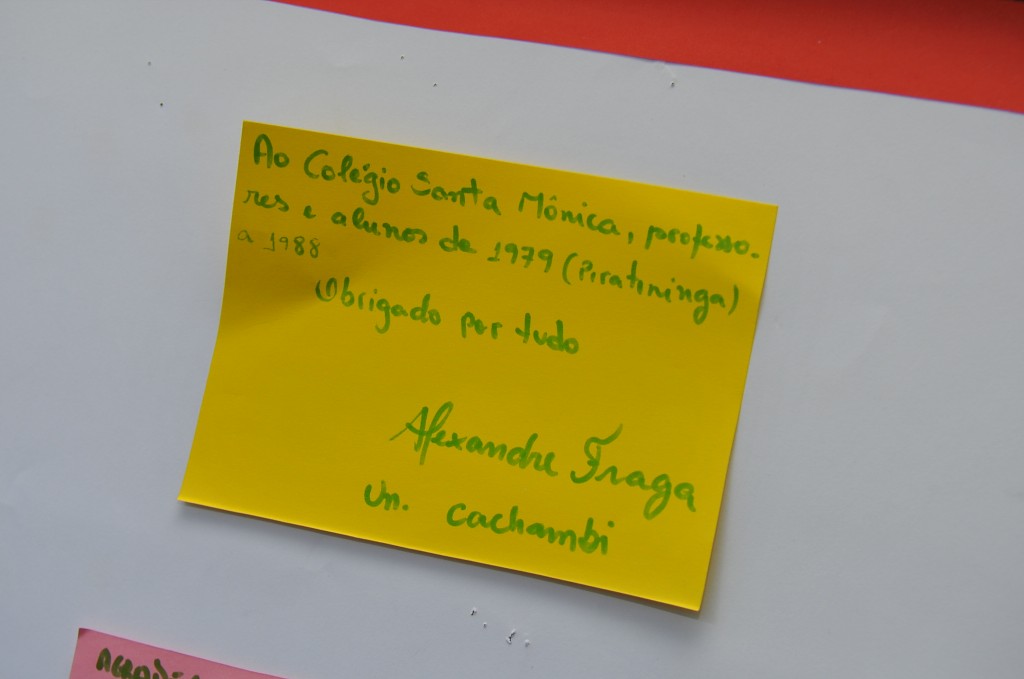 Ao Colégio Santa Mônica, professo-
res e alunos de 1979 (Piratininga)
a 1988
Obrigado por tudo
Alexandre Fraga
Un. Cachambi